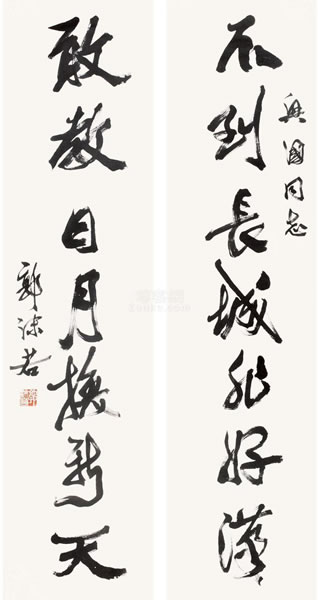 不到長城非好漢
興國同志
敢教日月換新天
郭沫若